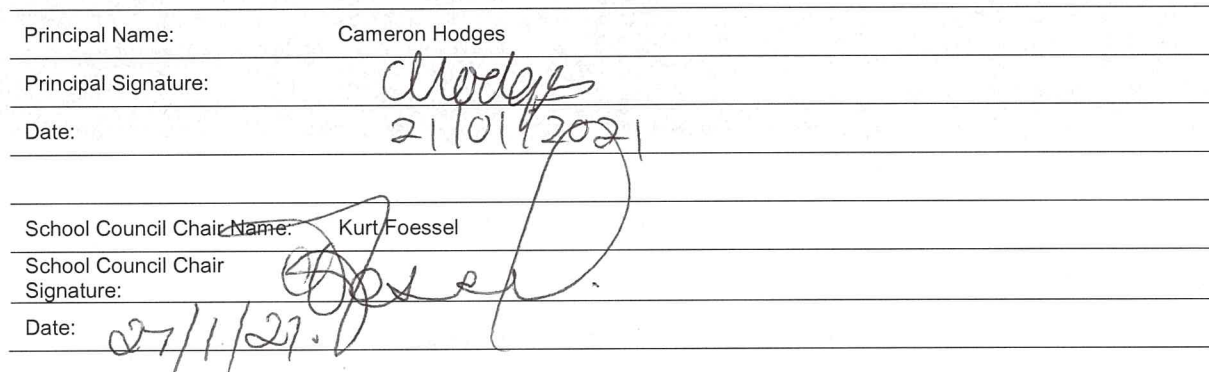 Principal Name: Cameron Hodges
Principal Signature: CHodges
Date: 21/01/2021
School Council Chair Name: Kurt Foessel
School Council Chair
Signature:
Date: 27/1/21.